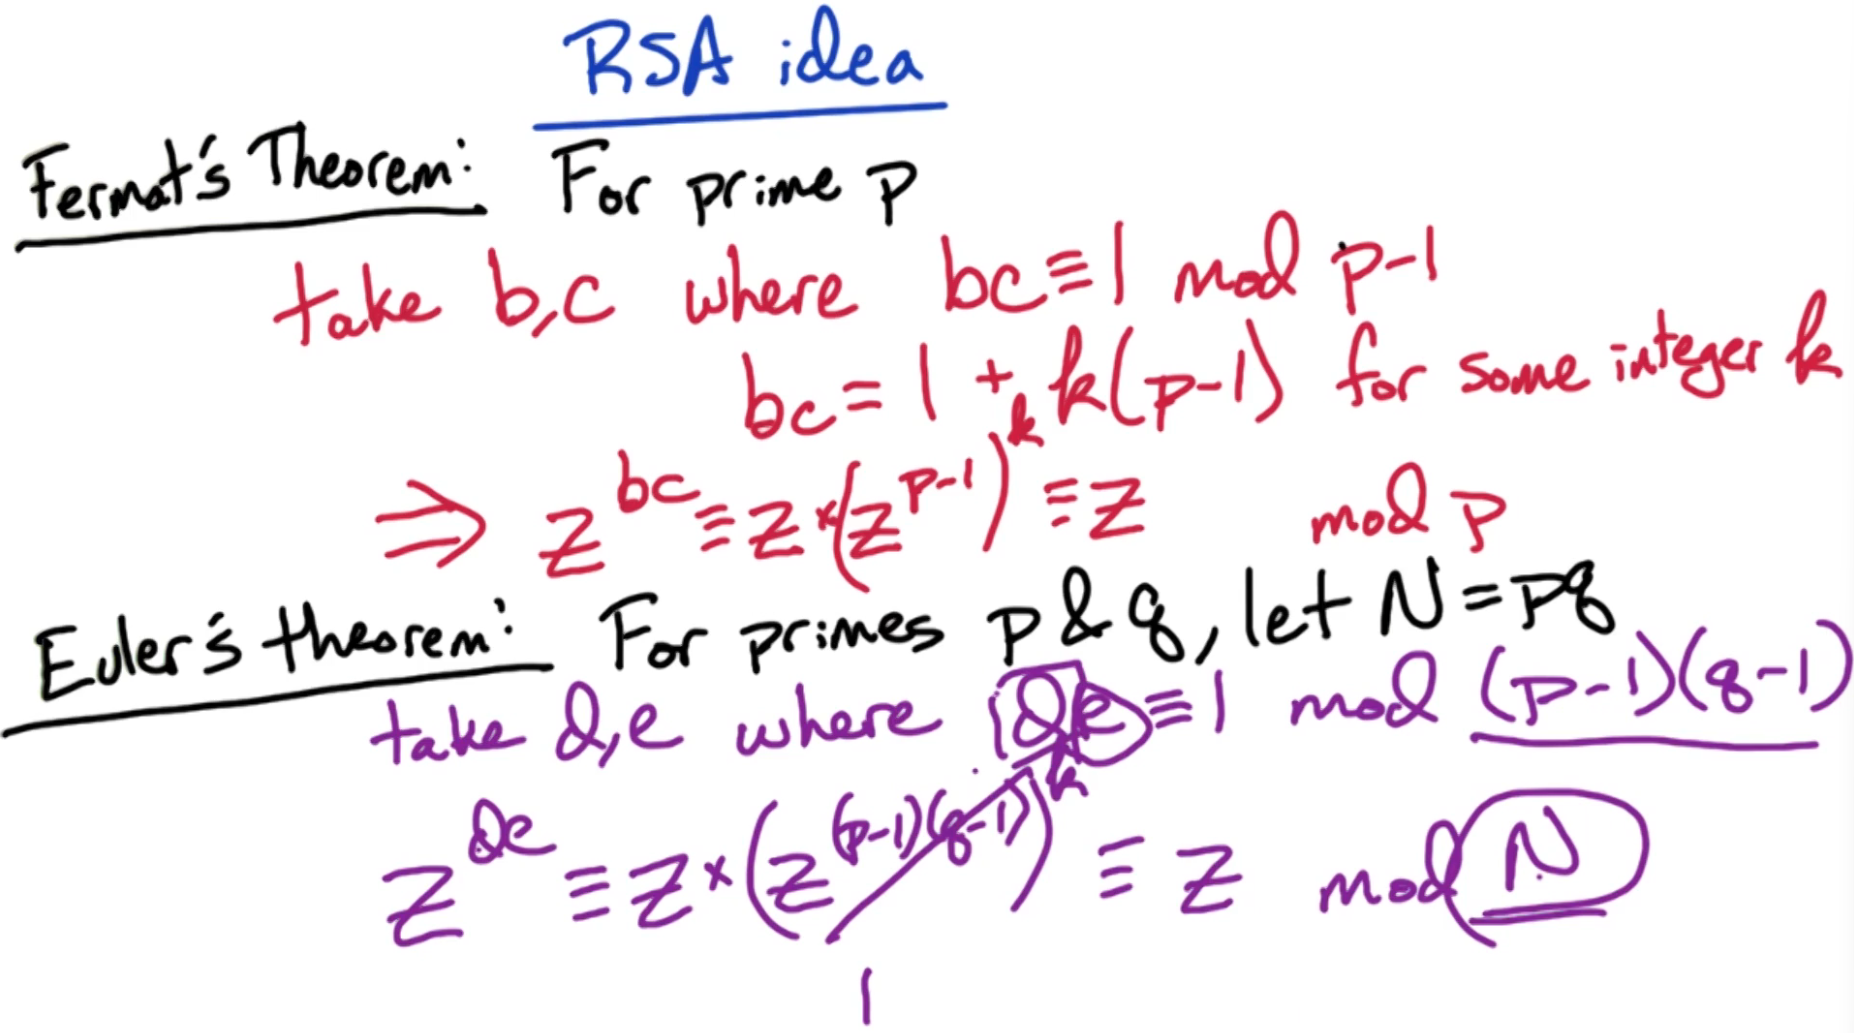 RSA idea
Fermat's Theorem: For prime p
take b,c where bc ≡ 1 mod p-1
bc = 1 + k(p-1) for some integer k
⇒ z^{bc} ≡ z × (z^{p-1})^k ≡ z mod p
Euler's theorem: For primes p & q, let N = pq
take d,e where de ≡ 1 mod (p-1)(q-1)
z^{de} ≡ z × (z^{(p-1)(q-1)})^k ≡ z mod N
1